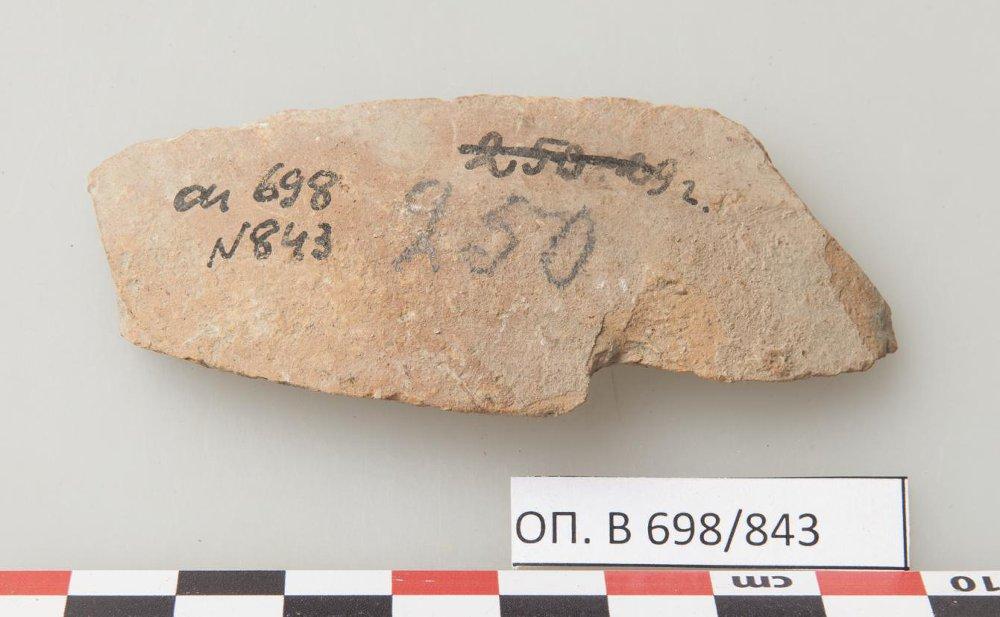 оп 698
N843
250
ОП. В 698/843
cm
10